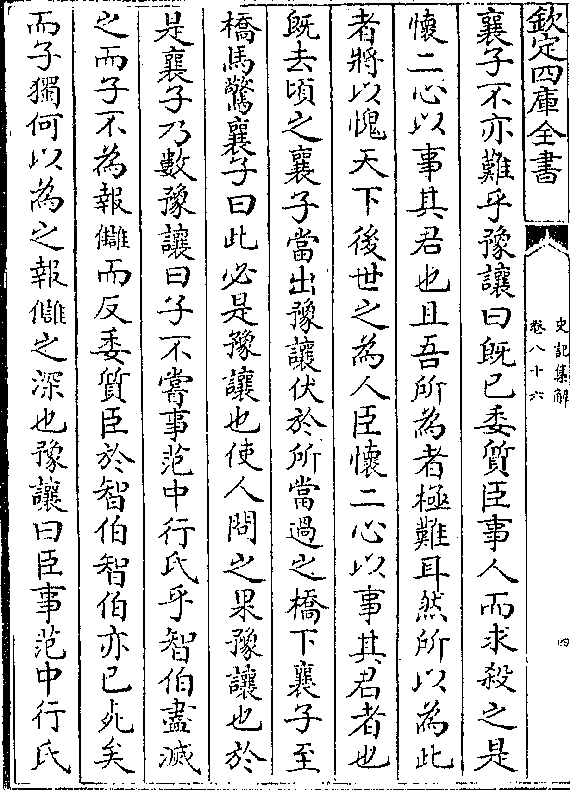 欽定四庫全書
史記集解
卷八十六
四
襄子不亦難乎豫讓曰既已委質臣事人而求殺之是
懷二心以事其君也且吾所為者極難耳然所以為此
者將以愧天下後世之為人臣懷二心以事其君者也
既去頃之襄子當出豫讓伏於所當過之橋下襄子至
橋馬驚襄子曰此必是豫讓也使人問之果豫讓也於
是襄子乃數豫讓曰子不嘗事范中行氏乎智伯盡滅
之而子不為報讎而反委質臣於智伯智伯亦已死矣
而子獨何以為之報讎之深也豫讓曰臣事范中行氏